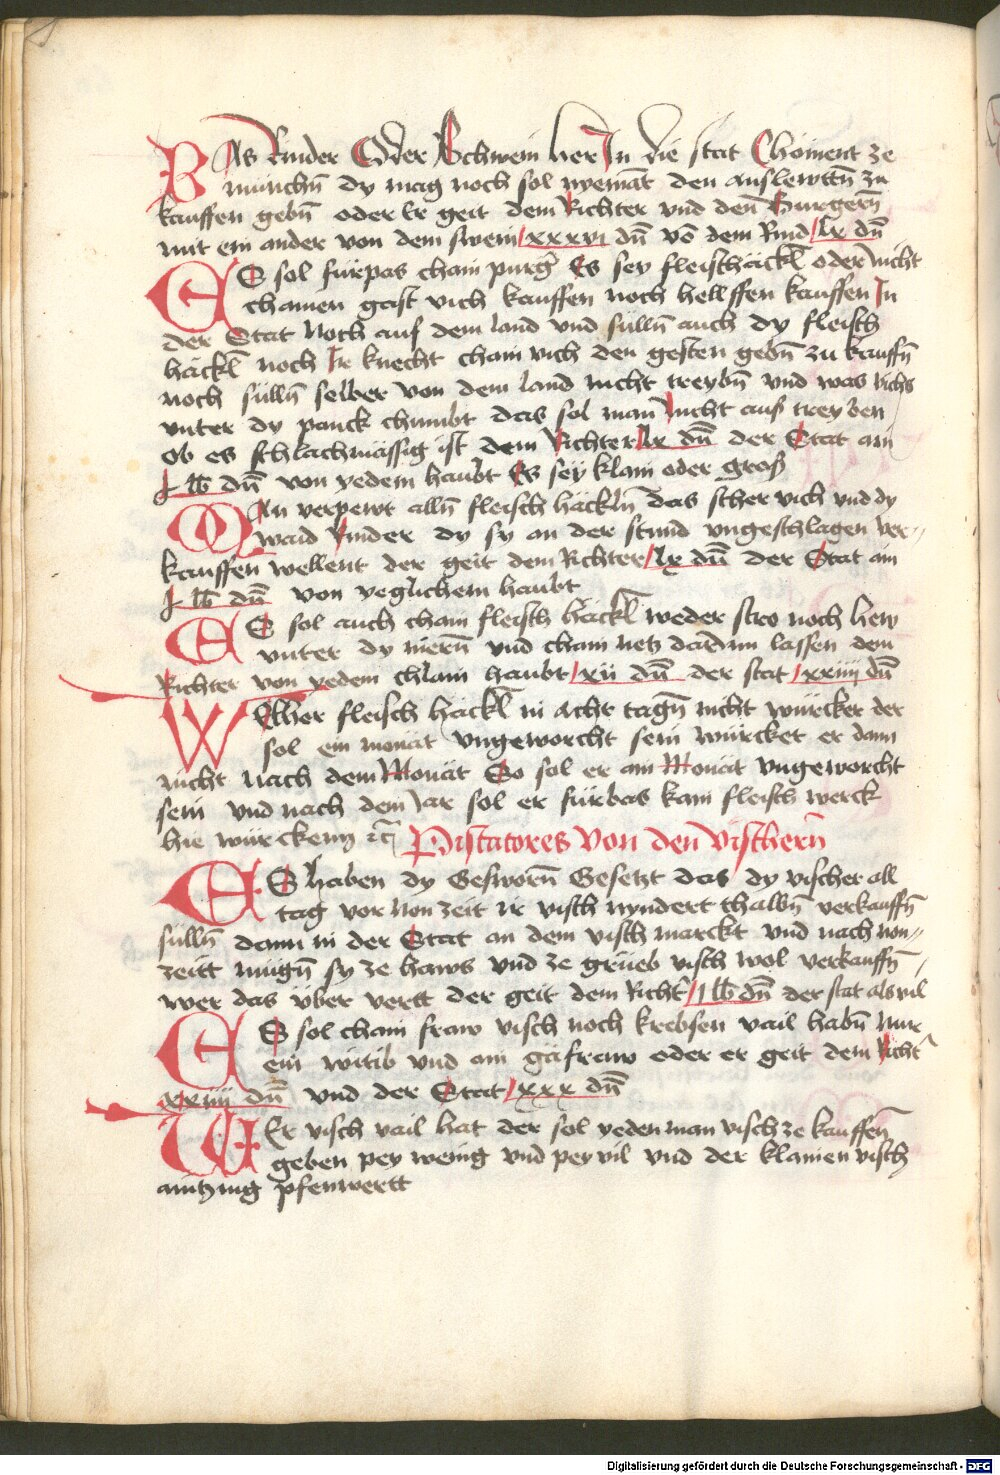 BAs Rinder Oder Schwein her In die stat Choment ze
münchn̄ dy mag noch sol nyemāt den auslewttn̄ zu
kauffen gebn̄ oder Er geit dem Richter vnd den Burgern̄
mit ein ander von dem swein xxxvi dn̄ vō dem Rind lx dn̄
ES sol fürpas chain purg̉ Es sey fleischäckl̄ oder nicht
chainen gast vich kauffen noch hellffen kauffen In
der Stat Noch auf dem land vnd sülln̄ auch dy fleisch
häckl̄ noch Ir knecht chain vich den gesten gebn̄ zu kauffn̄
noch sülln̄ selber von dem land nicht treybn̄ vnd was vichs
vnter dy panck chumbt das sol man nicht aus treyben
ob es schlachmässig ist dem Richter lx dn̄ der Stat ain
j lb dn̄ von yedem haubt Es sey klain oder gros
MAn verpewt alln̄ fleisch häckln̄ das scher vich vnd dy
waid Rinder dy sy an der stund vngeschlagen ver-
kauffen wellent der geit dem Richter lx dn̄ der Stat ain
j lb dn̄ von yeglichem haubt
ES sol auch chain fleisch häckl̄ weder stro noch hew
vnter dy niern̄ vnd chain netz daran lassen dem
Richter von yedem chlain haubt xii dn̄ der stat xxiiii dn̄
WElher fleisch häckl̄ in Acht tagn̄ nicht würcket der
sol ein monat vngeworcht sein würcket er dann
nicht nach dem Monat So sol er ain Monat vngeworcht
sein vnd nach dem Jar sol er fürbas kain fleisch werck
hie würcken rc̄ Pistatores Von den Vischern̄
ES haben dy Gesworn̄ Gesetzt das dy vischer all
tag vor Non zeit ir visch nyndert thalbn̄ verkauffn̄
sülln̄ dann in der Stat an dem visch marckt vnd nach non-
zeitt mügn̄ sy ze haws vnd ze grüeb visch wol verkauffn̄
wer das über vertt der geit dem Richt̉ j lb dn̄ der stat als vil
ES sol chain fraw visch noch krebsen vail habn̄ Nur
ein witib vnd ain gäfraw oder er geit dem Richt̉
xxiiii dn̄ vnd der Stat xxx dn̄
WEr visch vail hat der sol yeden man visch ze kauffen̄
geben pey wenig vnd pey vil vnd der klainen visch
ainzing pfenwertt
Digitalisierung gefördert durch die Deutsche Forschungsgemeinschaft - DFG